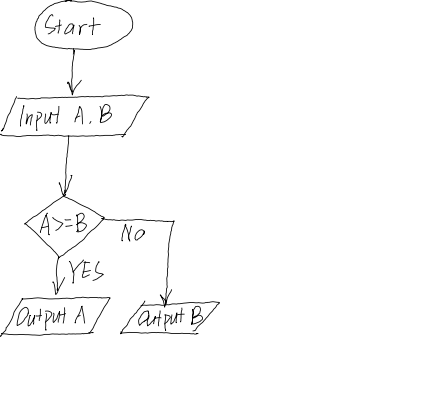 Start
Input A. B
A>=B
NO
YES
Output A
Output B